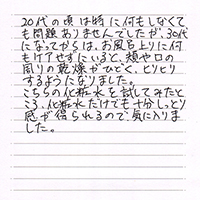 20代の頃は特に何もしなくて
も問題ありませんでしたが、30代
になってからは、お風呂上りに何
もケアせずにいると、頬や口の
周りの乾燥がひどく、ヒリヒリ
するようになりました。
こちらの化粧水を試してみたと
ころ、化粧水だけでも十分しっとり
感が得られるので、気に入りま
した。